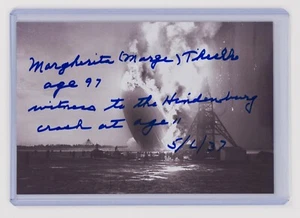 Margherita (Marge)
age 97
witness to the Hindenburg
crash at age 11
5/6/37